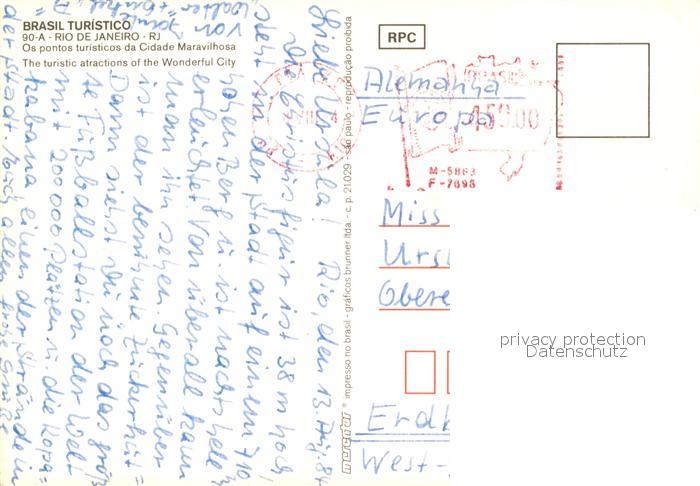 BRASIL TURÍSTICO
90-A - RIO DE JANEIRO - RJ
Os pontos turísticos da Cidade Maravilhosa
The turistic atractions of the Wonderful City
Rio, den 13. Aug. 84
Liebe Ursula!
Die Christusfigur ist 38 m hoch,
steht in der Stadt auf einem 710
hohen Berg u. ist nachts hell
erleuchtet. Von überall kann
man ihn sehen. Gegenüber
ist der berühmte Zuckerhut =
Dann siehst Du noch das größ
te Fußballstation der Welt
mit 200 000 Plätzen u. die Kopa =
kabana einen der Strände in
der Stadt. Euch allen frohe Grüße
von
Walter +
mercator ® impresso no brasil - gráficos brunner ltda. - c. p. 21.029 - são paulo - reprodução proibida
RPC
BRASIL
150.00
M-5863
F-7698
Alemanha
Europa
Miss
Urs
Obere
Erd
West-
privacy protection
Datenschutz